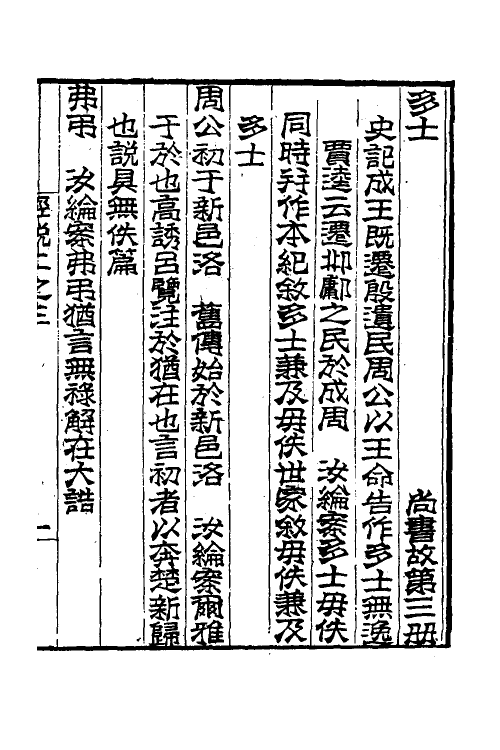 多士　尚書故第三册
史記成王既遷殷遺民周公以王命告作多士無逸
賈逵云遷邶鄘之民於成周　汝綸案多士毋佚
同時并作本紀敘多士兼及毋佚世家敘毋佚兼及
多士
周公初于新邑洛　舊傳始於新邑洛　汝綸案爾雅
于於也高誘呂覽注於猶在也言初者以奔楚新歸
也說具無佚篇
弗弔　汝綸案弗弔猶言無祿解在大誥
經說二之三　一